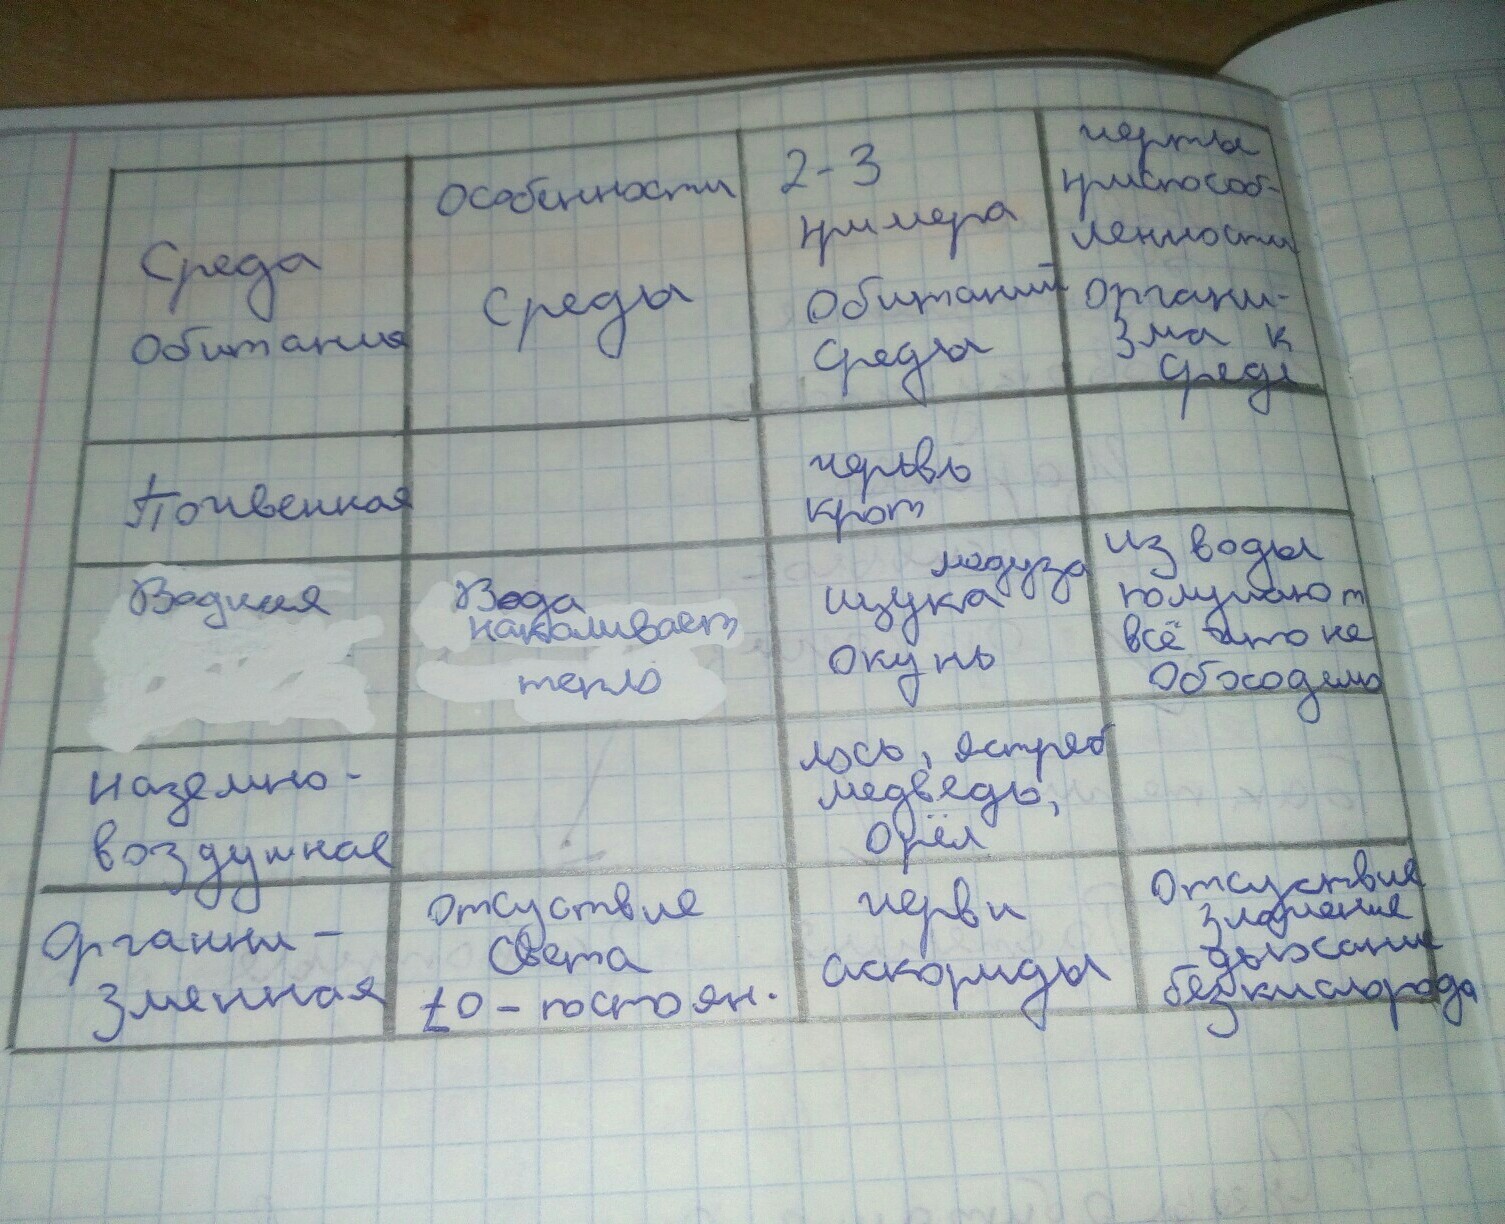 Среда
обитания
Особенности
среды
2-3
примера
обитаний
среды
черты
приспособ-
ленности
органи-
зма к
среде
Почвенная
червь
крот
Водная
Вода
накаливает
тепло
медуза
щука
окунь
из воды
получают
всё что не
обходемо
наземно-
воздушная
лось, ястреб
медведь,
орёл
Органни-
зменная
отсуствие
света
t0-постоян.
черви
аскориды
Отсуствие
дыхание
без кислорода